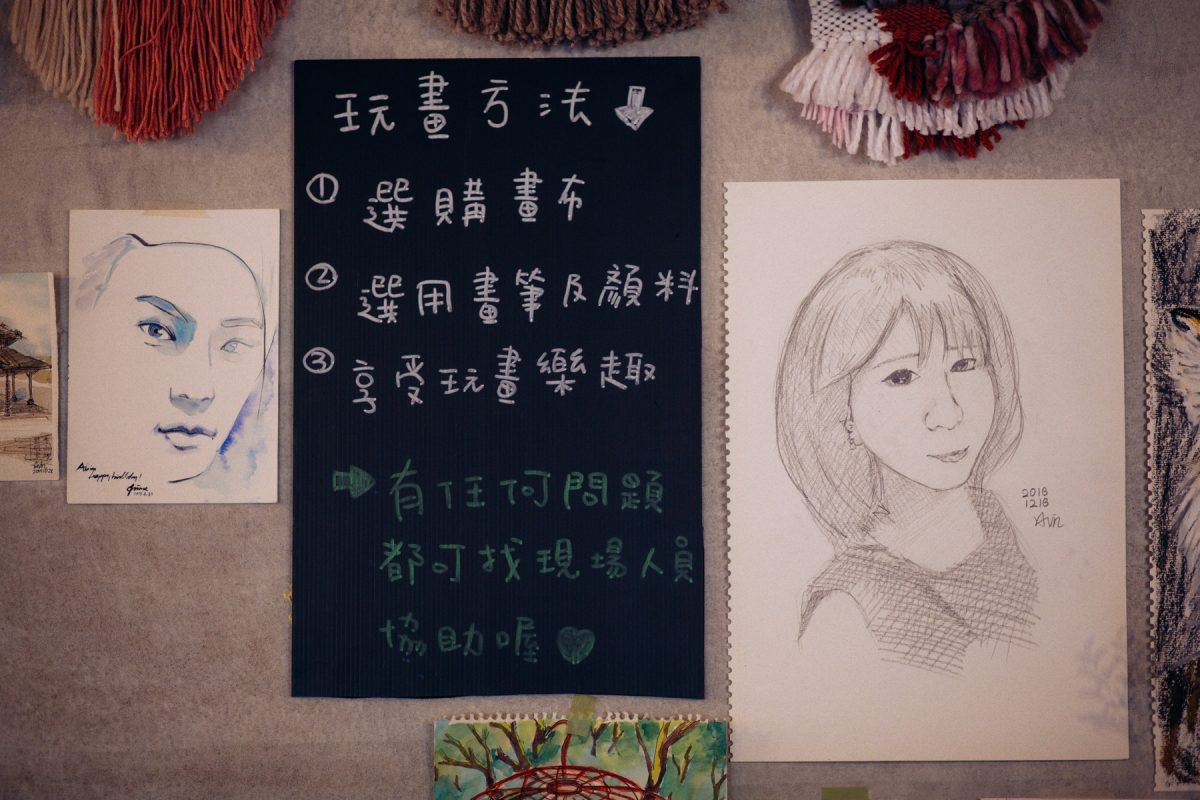 玩畫方法
① 選購畫布
② 選用畫筆及顏料
③ 享受玩畫樂趣
有任何問題
都可找現場人員
協助喔
happy birthday!
2018
1218
Avin